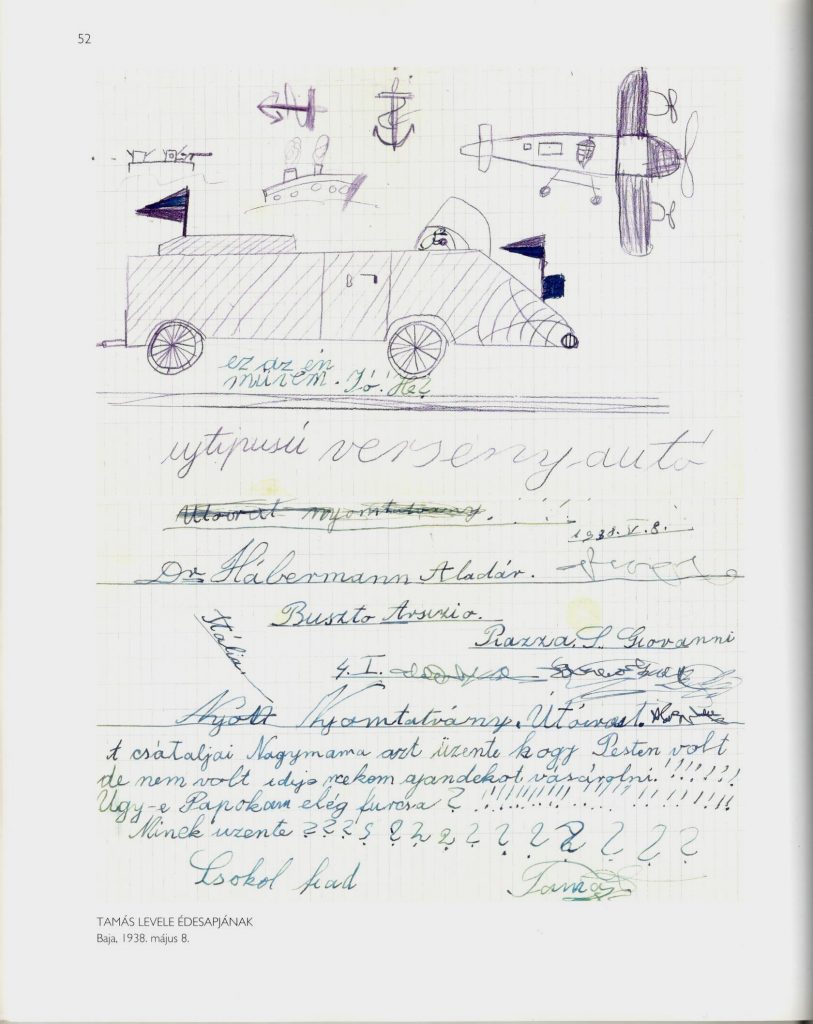 52
ez az én
művem. Jó! He?
ujtipusú versenyautó
Utóirat nyomtatvány.
1938. V. 8.
Dr Hábermann Aladár.
Buszto Arsizio.
Piazza. S. Giovanni
Itália.
4. I.
Nyomtatvány. Utóirat.
A csátaljai Nagymama azt üzente hogy Pesten volt
de nem volt ideje nekem ajandekot vásárolni!!!!!!!
Ugy-e Papokám elég furcsa? !!!!!!!!!!!!!!!!!!!!
Minek uzente ??????????????
Csokol fiad Tamás.
TAMÁS LEVELE ÉDESAPJÁNAK
Baja, 1938. május 8.